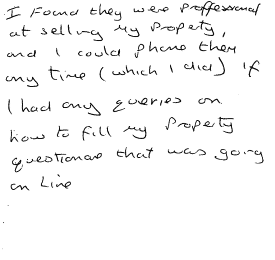 I Found they were Proffesional
at selling my Property,
and I could phone them
any time (which I did) if
I had any queries on
how to fill my Property
questionare that was going
on Line